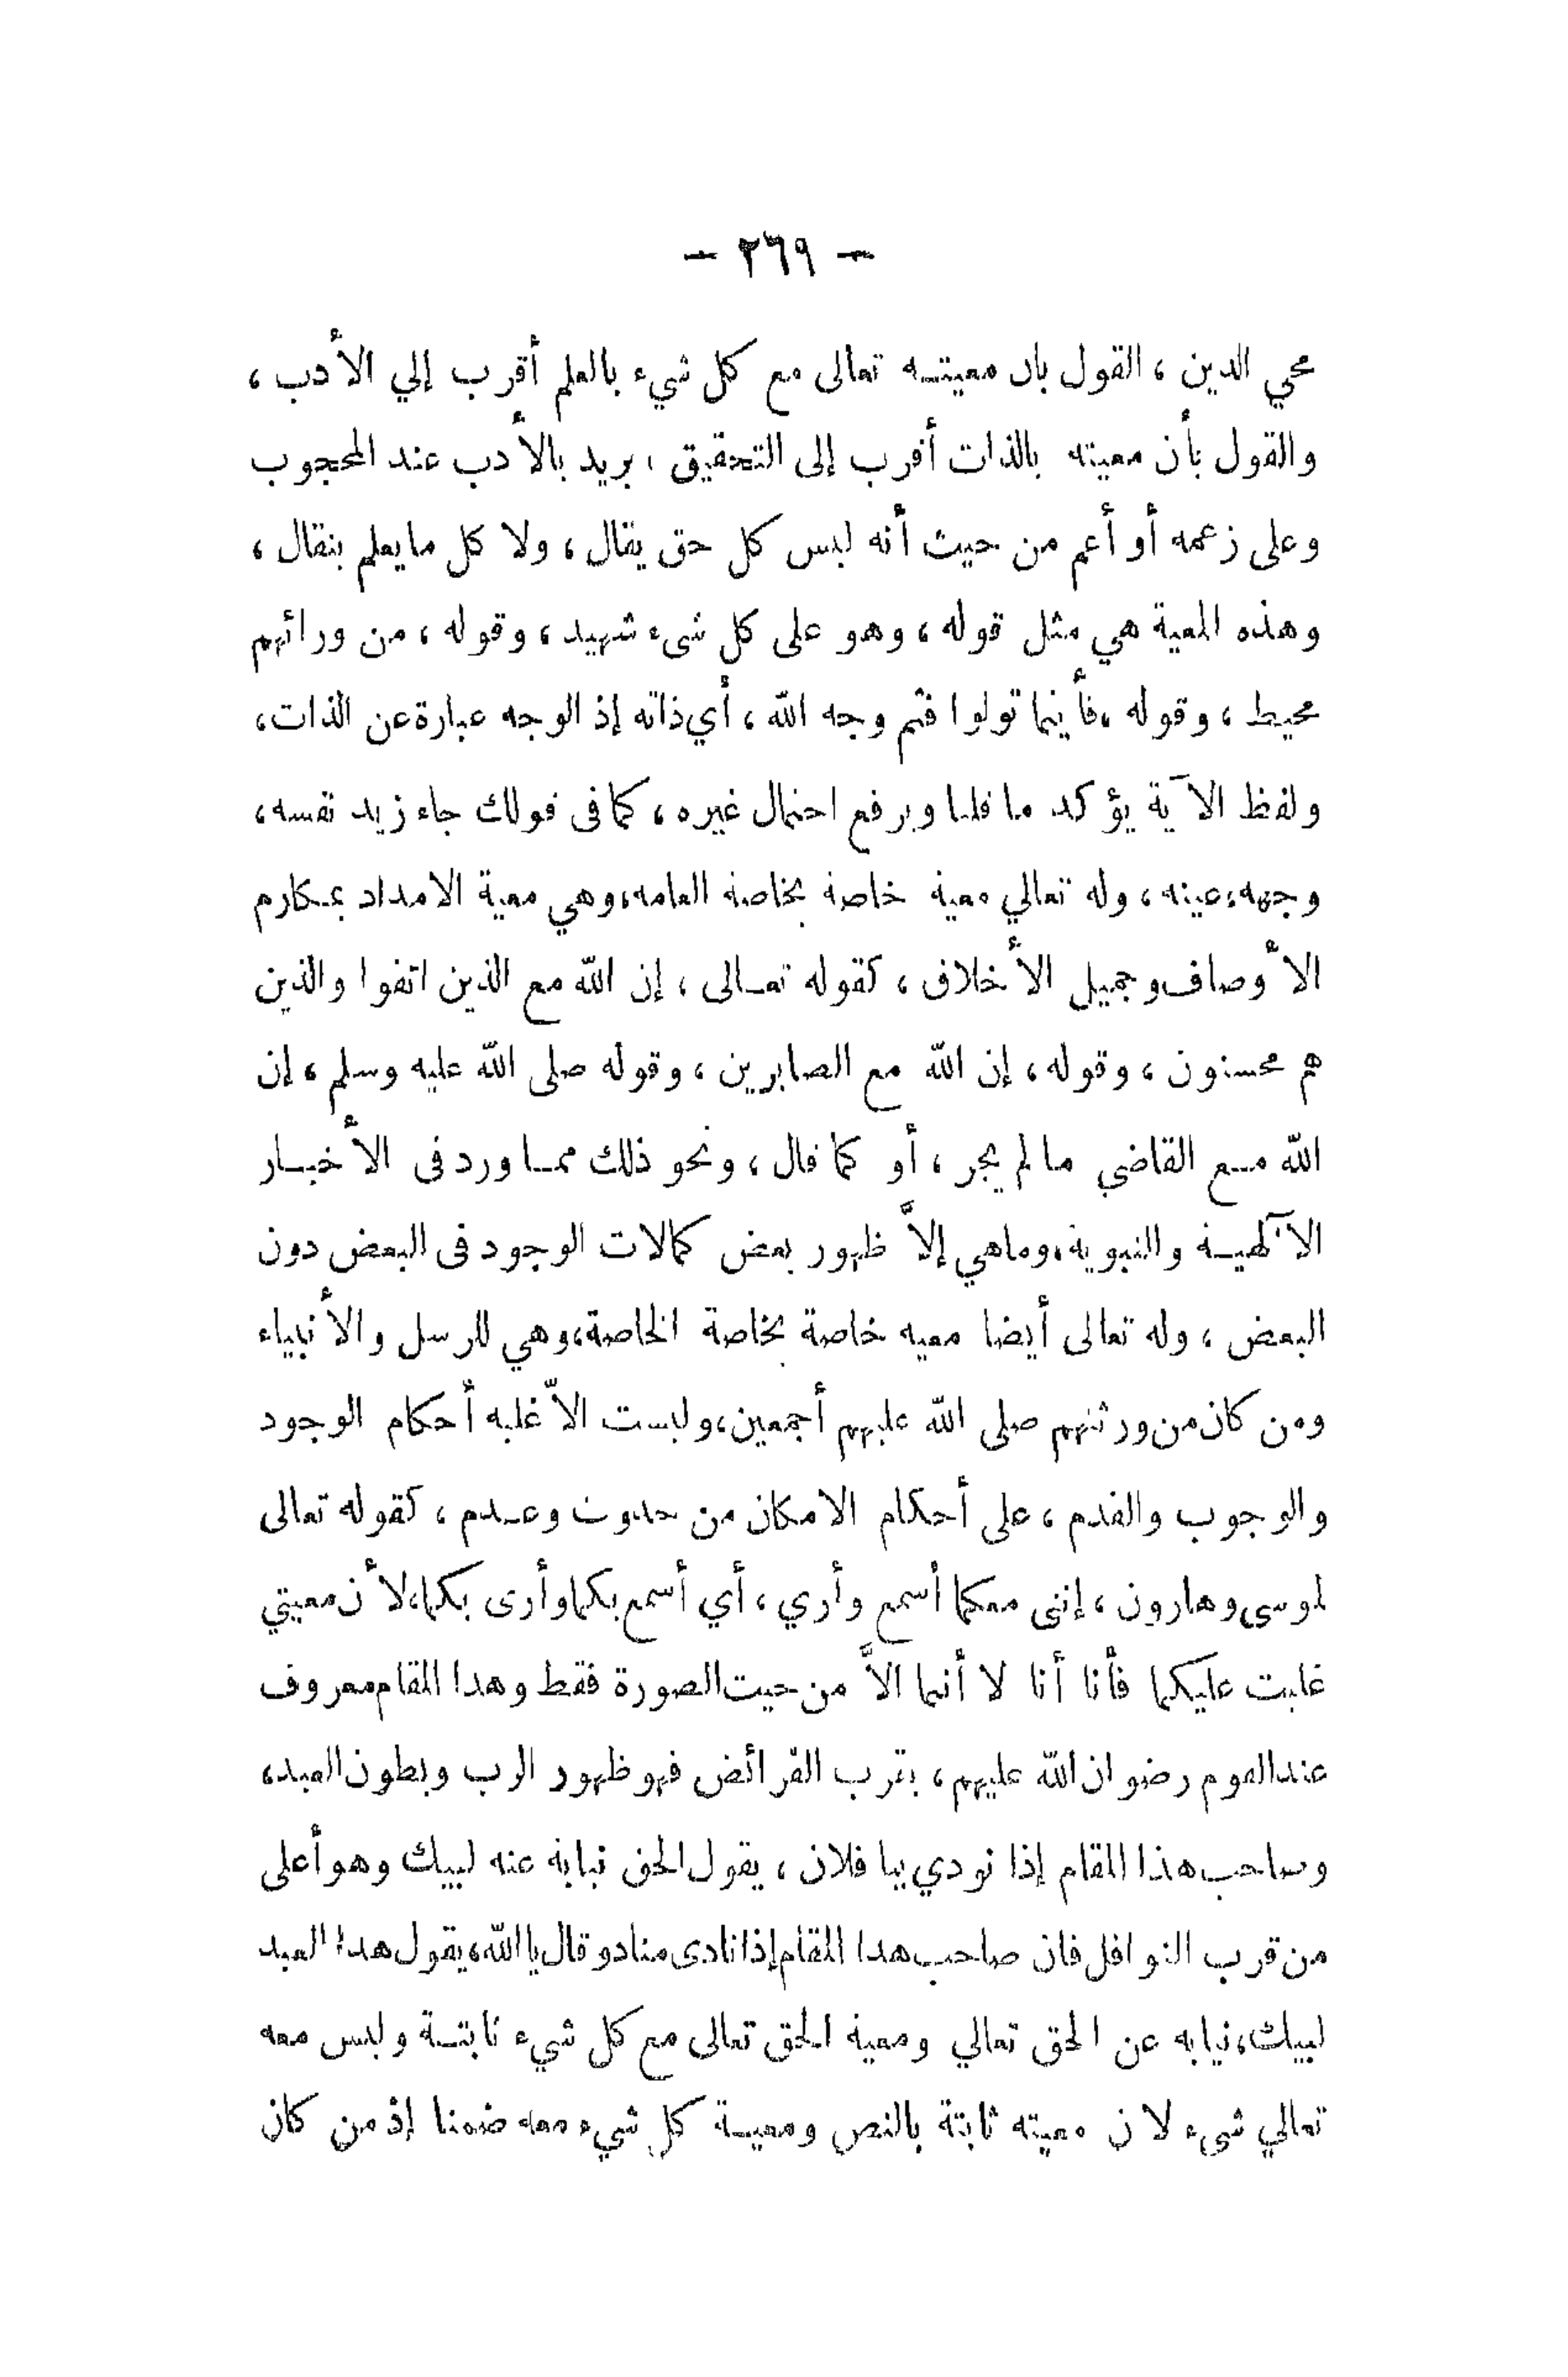 - ٢٦٩ -
محي الدين ، القول بان معيتـه تعالى مع كل شيء بالعلم أقرب إلي الأدب ،
والقول بأن معيته بالذات أقرب إلى التحقيق ، يريد بالأدب عند المحجوب
وعلى زعمه أو أعم من حيث أنه ليس كل حق يقال ، ولا كل مايعلم ينقال ،
وهذه المعية هي مثل قوله ، وهو على كل شىء شهيد ، وقوله ، من ورائهم
محيط ، وقوله ،فأينما تولوا فثم وجه الله ، أي ذاته إذ الوجه عبارة عن الذات،
ولفظ الآية يؤكد ما قلنا ويرفع احتمال غيره ، كما فى قولك جاء زيد نفسه،
وجهه،عينه ، وله تعالي معية خاصة بخاصة العامه،وهي معية الامداد بمـكارم
الأوصاف وجميل الأخلاق ، كقوله تعـالى ، إن الله مع الذين اتقوا والذين
هم محسنون ، وقوله ، إن الله مع الصابرين ، وقوله صلى الله عليه وسلم ، إن
الله مـع القاضي ما لم يجر ، أو كما قال ، ونحو ذلك ممـا ورد فى الأخبـار
الآلهيـة والنبوية،وماهي إلاَّ ظهور بعض كمالات الوجود فى البعض دون
البعض ، وله تعالى أيضا معيه خاصة بخاصة الخاصة،وهي للرسل والأنبياء
ومن كان من ورثتهم صلى الله عليهم أجمعين،وليست الاّ غلبه أحكام الوجود
والوجوب والقدم ، على أحكام الامكان من حدوث وعـدم ، كقوله تعالى
لموسى وهارون ، إننى معكما أسمع وأري ، أي أسمع بكما وأرى بكما،لأن معيتي
غلبت عليكما فأنا أنا لا أنتما الاَّ من حيث الصورة فقط وهذا المقام معروف
عند القوم رضوان الله عليهم ، بقرب الفرائض فهو ظهور الرب وبطون العبد،
وصاحب هذا المقام إذا نودي بيا فلان ، يقول الحق نيابة عنه لبيك وهو أعلى
من قرب النوافل فان صاحب هذا المقام إذا نادى مناد وقال يا الله،يقول هذا العبد
لبيك،نيابه عن الحق تعالي ومعية الحق تعالى مع كل شيء ثابتـة وليس معه
تعالي شىء لان معيته ثابتة بالنص ومعيـة كل شيء معه ضمنا إذ من كان